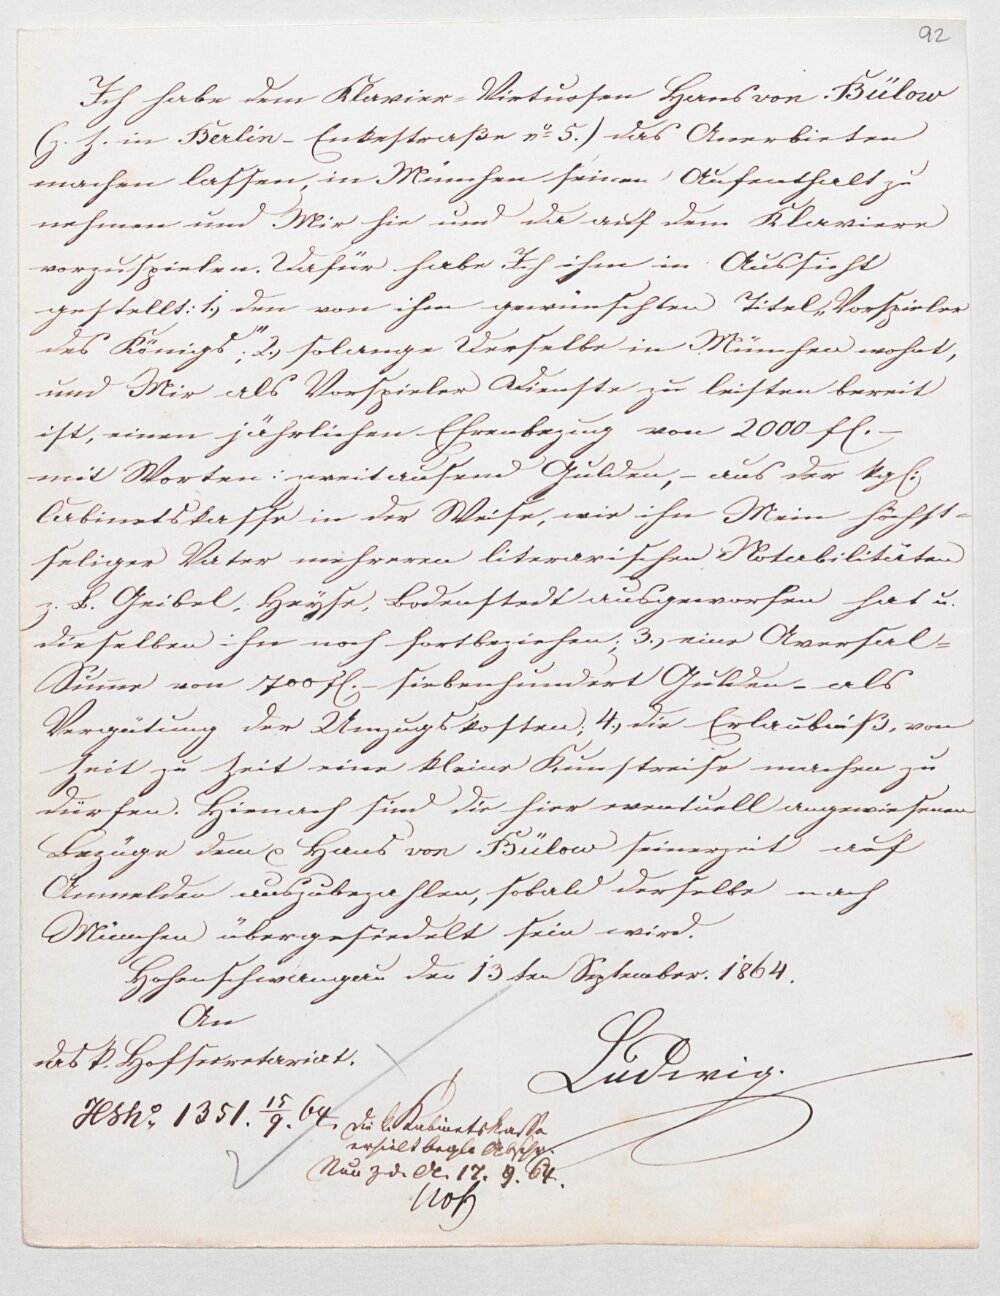 92
Ich habe dem Klavier-Virtuosen Hans von Bülow
(z. Z. in Berlin - Enkestraße No 5.) das Anerbieten
machen lassen, in München seinen Aufenthalt zu
nehmen und Mir hie und da auf dem Klaviere
vorzuspielen. Dafür habe Ich ihm in Aussicht
gestellt: 1., den von ihm gewünschten Titel „Vorspieler
des Königs"; 2., solange Derselbe in München wohnt,
und Mir als Vorspieler Dienste zu leisten bereit
ist, einen jährlichen Ehrenbezug von 2000 fl. -
mit Worten: zweitausend Gulden, - aus der kgl.
Cabinetskasse in der Weise, wie ihn Mein höchst-
seliger Vater mehreren literarischen Notabilitäten
z. B. Geibel, Heyse, Bodenstedt ausgeworfen hat u.
dieselben ihn noch fortbeziehen; 3., eine Aversal-
Summe von 700 fl. - siebenhundert Gulden - als
Vergütung der Umzugskosten; 4., die Erlaubniß, von
Zeit zu Zeit eine kleine Kunstreise machen zu
dürfen. Hienach sind die hier eventuell angewiesenen
Bezüge dem p Hans von Bülow seinerzeit auf
Anmelden auszubezahlen, sobald derselbe nach
München übergesiedelt sein wird.
Hohenschwangau den 13ten September. 1864.
An
das k. Hofsecretariat.
Ludwig.
1351. 15/9. 64.
die k. Kabinetskasse
erhielt begl. Abschr.
Nun z. d. A. 17. 9. 64.